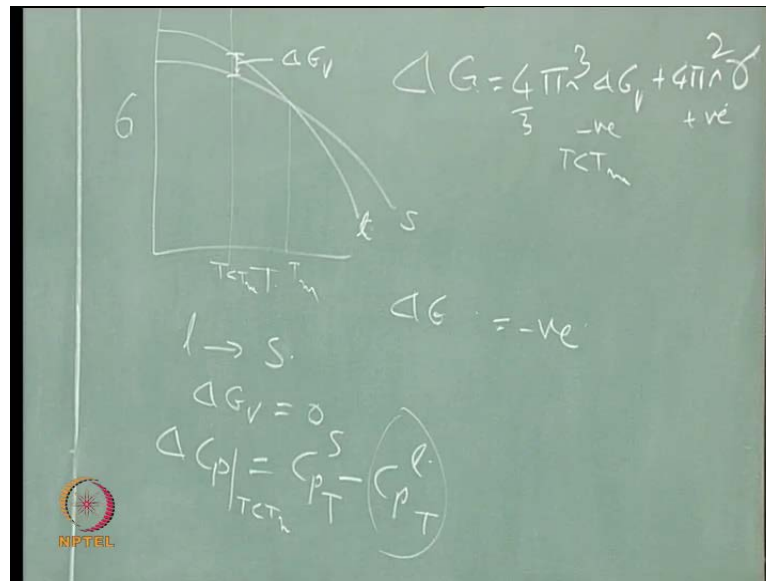 ΔG = 4/3 πr³ ΔGv + 4πr² γ
-ve +ve
T<Tm
ΔGv
G
l s
T<Tm T. Tm
ΔG = -ve
l → s.
ΔGv = 0
ΔCp|T<Tm = CpT^s - CpT^l.
NPTEL